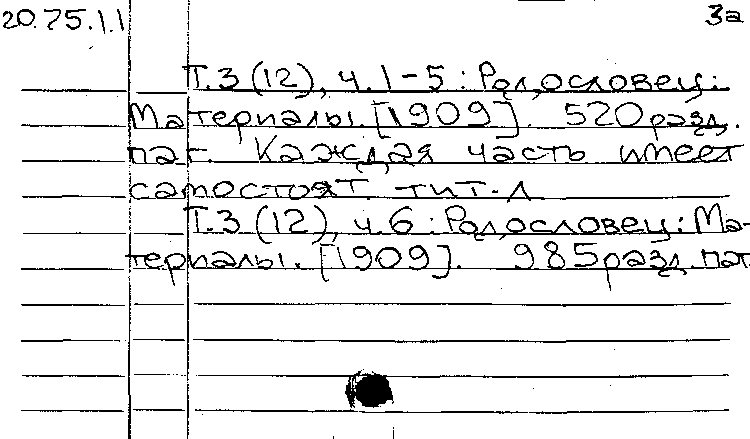 20.75.1.1 3а
Т.3 (12), ч.1-5: Родословец:
Материалы. [1909]. 520 разд.
паг. Каждая часть имеет
самостоят. тит. л
Т.3 (12), ч.6: Родословец: Ма-
териалы. [1909]. 985 разд. паг